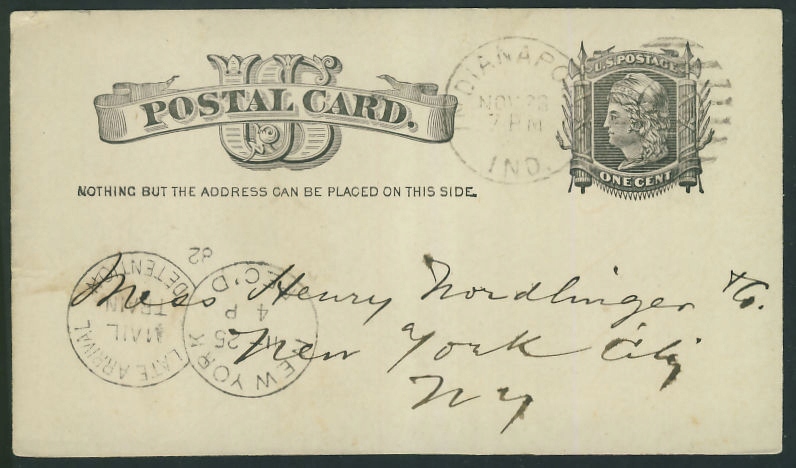 US
POSTAL CARD.
NOTHING BUT THE ADDRESS CAN BE PLACED ON THIS SIDE.
U.S. POSTAGE
ONE CENT
INDIANAPO
NOV 28
7 PM
IND.
Mess Henry Nordlinger & Co.
New York City
NY
LATE ARRIVAL
MAIL
TRAIN
DETENTION
NEW YORK
25
4 P
REC'D
82